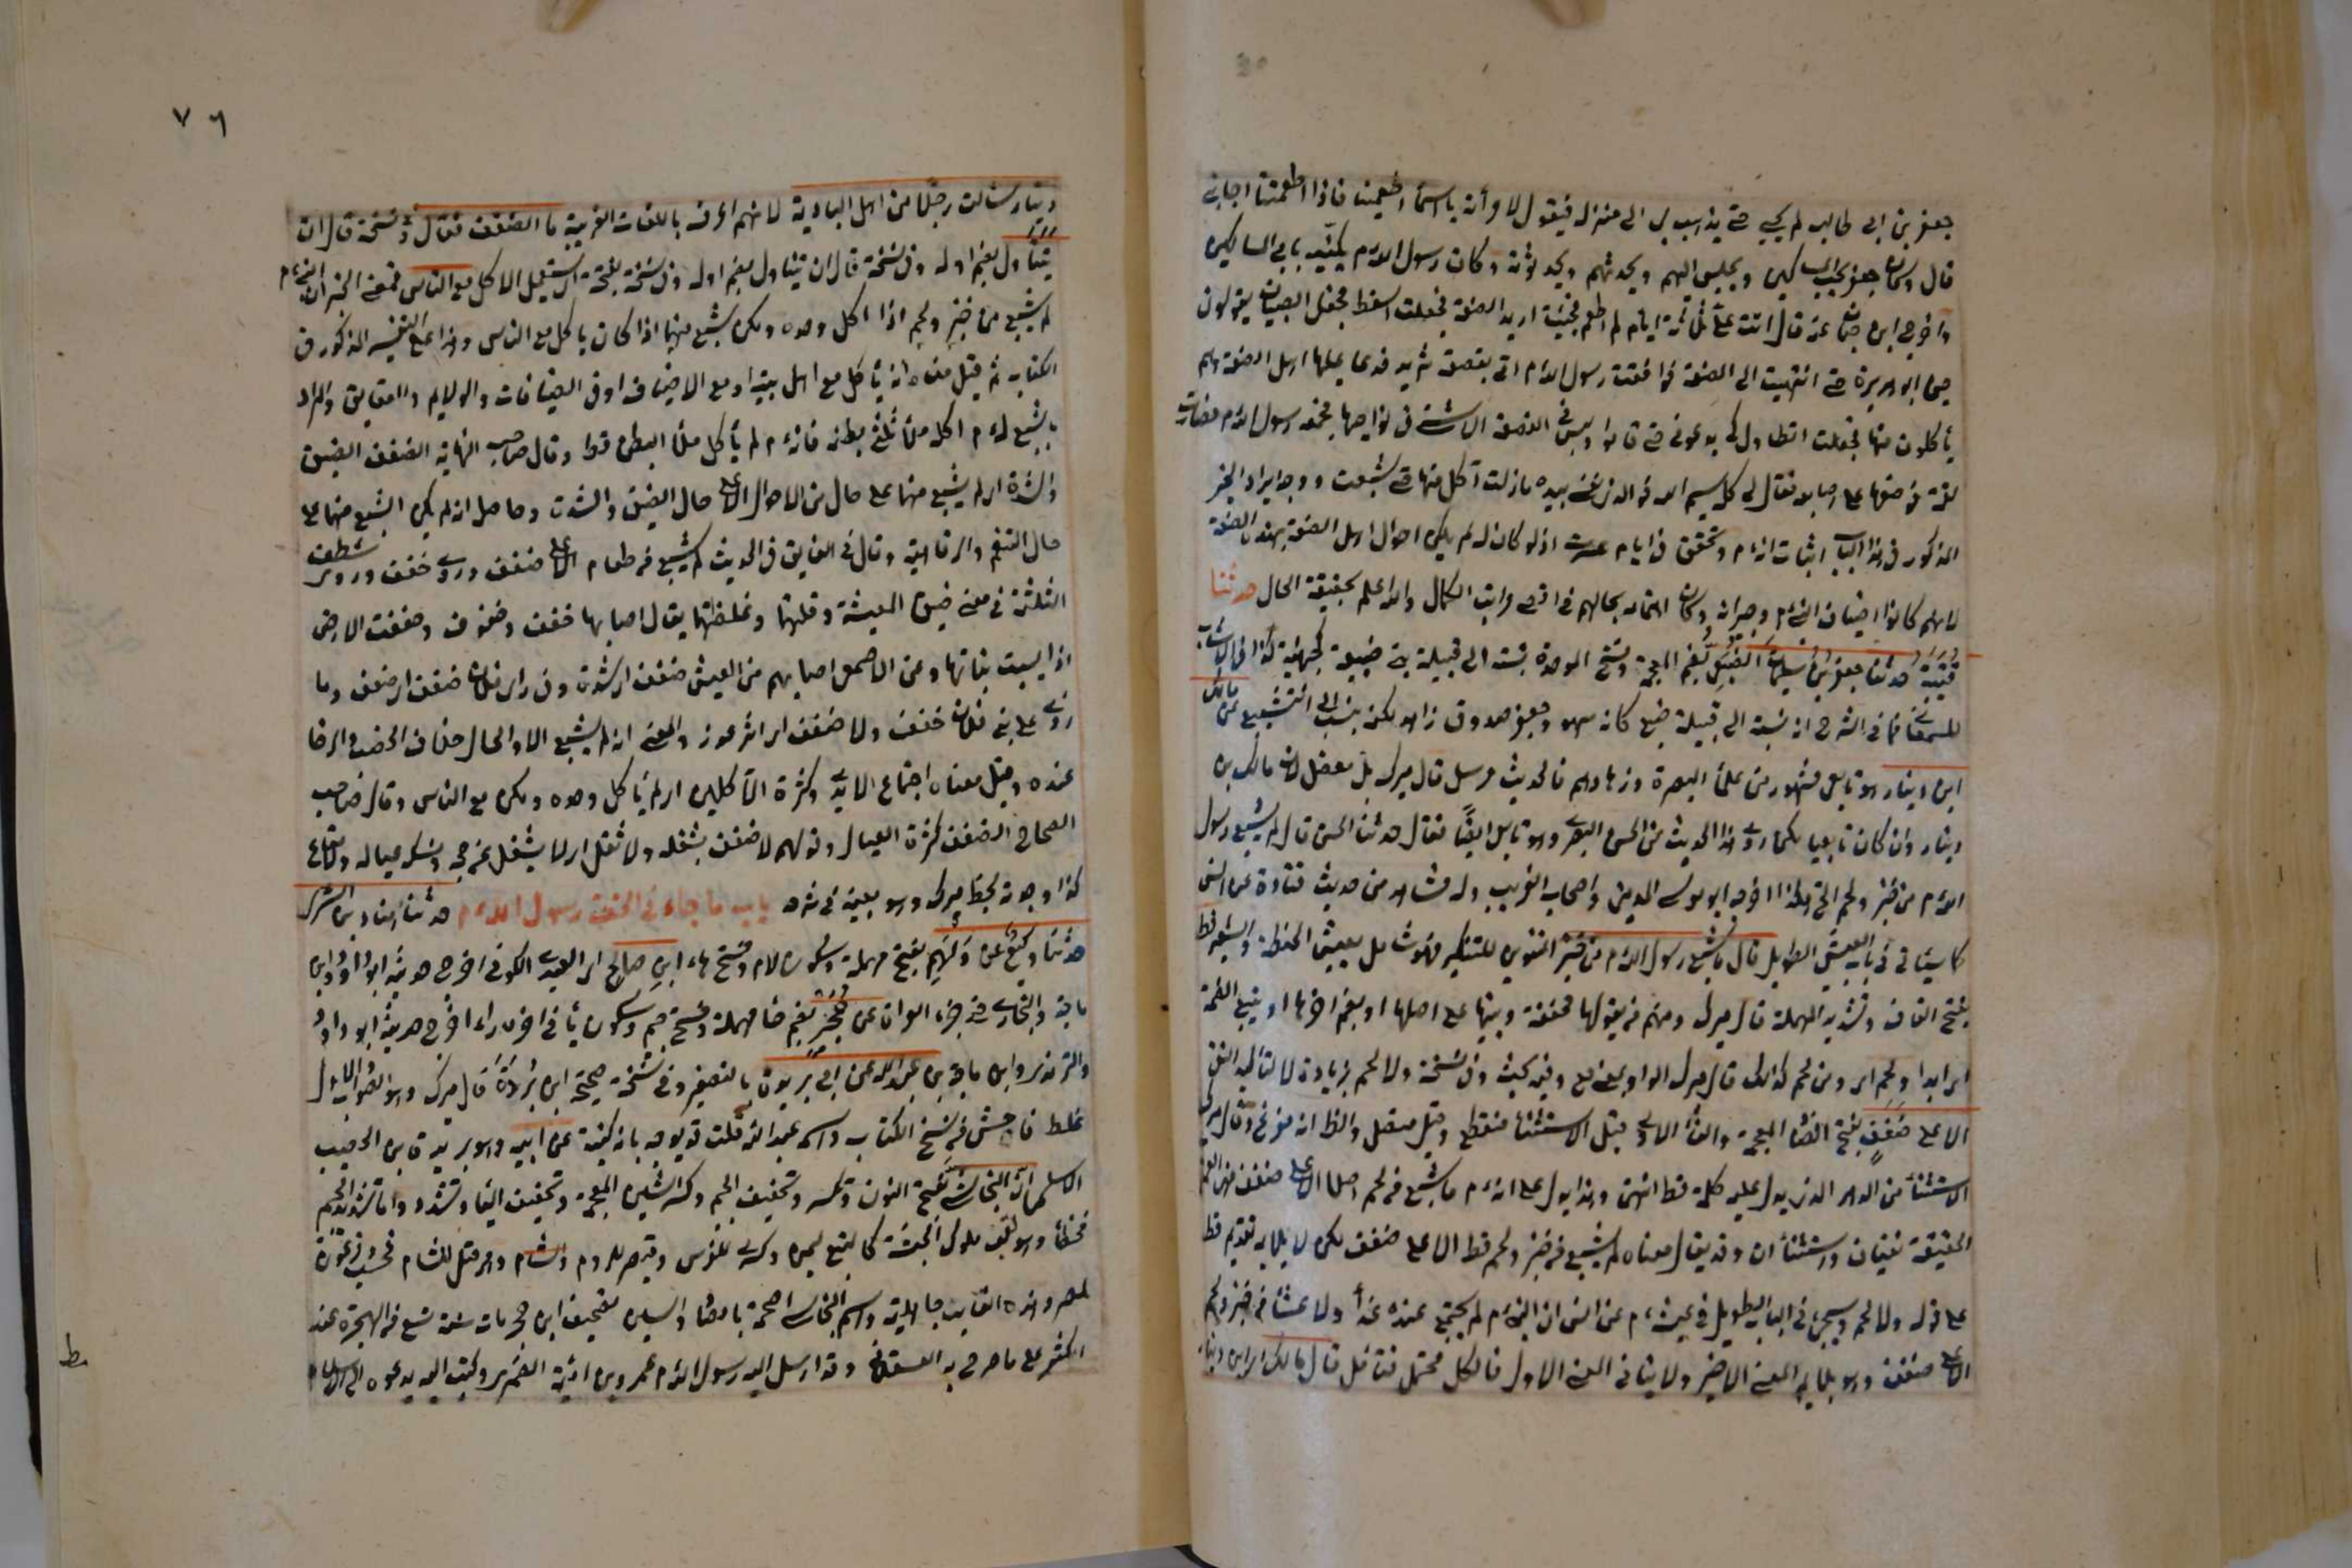 جعفر بن ابي طالب لم يجبني حتى يذهب بي الى منزله فيقول لامرأته يا اسماء اطعمينا فاذا اطعمتنا اجابني
قال وكان جعفر يحب المساكين ويجلس اليهم ويحدثهم ويحدثونه وكان رسول الله م يكنيه بابي المساكين
واخرج ابن حبان عنه قال اتت علي ثلاثة ايام لم اطعم فجئت اريد الصفة فجعلت اسقط فجعل الصبيان يقولون
جن ابو هريرة حتى انتهيت الى الصفة فوافقت رسول الله م اتي بقصعة ثريد فدعا عليها اهل الصفة وهم
يأكلون منها فجعلت اتطاول كي يدعوني حتى قاموا وليس في القصعة الا شيء في نواحيها فجمعه رسول الله م فصارت
لقمة فوضعها على اصابعه فقال لي كل بسم الله فوالذي نفسي بيده ما زلت آكل منها حتى شبعت ووجه ايراد الخبر
المذكور في هذا الباب اثبات انه م وتحقق في ايام عسرته اذ لو كان له لم يكن احوال اهل الصفة بهذه الصفة
لانهم كانوا اضياف النبي م وجيرانه وكان اهتمامه بحالهم في اقصى مراتب الكمال والله اعلم بحقيقة الحال حدثنا
قتيبة حدثنا جعفر بن سليمان الضبعي بضم المعجمة وفتح الموحدة نسبة الى قبيلة بني ضبيعة كجهينة كذا في الانساب
للسمعاني فما في الشرح انه نسبة الى قبيلة ضبع كانه سهو وجعفر صدوق زاهد لكن ينسب الى التشيع عن مالك
ابن دينار هو تابعي مشهور من علماء البصرة وزهادهم فالحديث مرسل قال ميرك بل معضل لان مالك بن
دينار وان كان تابعيا لكنه روى هذا الحديث عن الحسن البصري وهو تابعي ايضا فقال حدثنا الحسن قال لم يشبع رسول
الله م من خبز ولحم الخ هكذا اخرجه ابو موسى المديني واصحاب الغريب وله شاهد من حديث قتادة عن انس
كما سيأتي في باب العيش الطويل قال ما شبع رسول الله م من خبز التنوين للتنكير فهو شامل لعيش الحنطة والشعير قط
بفتح القاف وتشديد المهملة قال ميرك ومنهم من يقولها مخففة ويبنيها على اصلها او بضم آخرها او يتبع الضمة
اي ابدا ولحم اي ومن لحم كذلك قال ميرك الواو بمعنى مع وفيه بحث وفي نسخة ولا لحم بزيادة لا لتأكيد النفي
الا على ضفف بفتح الضاد المعجمة والفاء الاولى قيل الاستثناء منقطع وقيل متصل والظاهر انه مفرغ وقال ميرك
الاستثناء من الدهر الذي يدل عليه كلمة قط انتهى وهذا يدل على انه م ما شبع من لحم اصلا الا على ضفف
الحقيقة نفيان واستثناءان وقد يقال معناه لم يشبع من خبز ولحم قط الا على ضفف لكن لا يلايمه تقديم قط
على قوله ولا لحم وسيجيء في الباب الطويل في عيشه م عن انس ان النبي م لم يجتمع عنده غداء ولا عشاء من خبز ولحم
الا على ضفف وهو يلايم المعنى الاخير ولا ينافي المعنى الاول فالكل محتمل فتأمل قال مالك اي ابن دينار
٧٦
دينار سألت رجلا من اهل البادية لانهم اعرف باللغات الغريبة ما الضفف فقال وفي نسخة قال ان
يتناول بضم اوله وفي نسخة قال ان يتناول بضم اوله وفي نسخة بفتحة اي يستعمل الاكل مع الناس فمعنى الخبر انه م
لم يشبع من خبز ولحم اذا اكل وحده ولكن شبع منهما اذا كان ياكل مع الناس وهذا على التفسير المذكور في
الكتاب ثم قيل معناه انه يأكل مع اهل بيته او مع الاضياف او في الضيافات والولايم والعقايق والمراد
بالشبع له م اكله ملأ ثلثي بطنه فانه م لم يأكل ملأ البطن قط وقال صاحب النهاية الضفف الضيق
والشدة اي لم يشبع منهما على حال من الاحوال الا على حال الضيق والشدة وحاصله انه لم يكن الشبع منهما على
حال التنعم والرفاهية وقال في الفايق في الحديث لم يشبع من طعام الا على ضفف وروي حفف وروي شظف
الثلثة في معنى ضيق المعيشة وقلتها وغلظتها يقال اصابهم حفف وضفوف وحففت الارض
اذا يبست نباتها وعن الاصمعي اصابهم من العيش ضفف اي شدة وفي رأي فلان ضفف اي ضعف وما
رؤي على بني فلان حفف ولا ضفف اي اثر عوز والمعنى انه لم يشبع الا والحال خلاف الخصب والرخا
عنده وقيل معناه اجتماع الايدي وكثرة الآكلين اي لم يأكل وحده ولكن مع الناس وقال صاحب
الصحاح الضفف كثرة العيال وقولهم لا ضفف يشغله ولا ثقل اي لا يشغله عن حجه ونسكه عياله ومتاعه
كذا وجدته بخط ميرك وهو بعينه في شرحه باب ما جاء في خف رسول الله م حدثنا هناد بن السري
حدثنا وكيع عن دلهم بفتح مهملة وسكون لام وفتح هاء ابن صالح اي العبدي الكوفي اخرج حديثه ابو داود وابن
ماجة والبخاري في جزء القراءة عن حجير بضم حاء مهملة وفتح جيم وسكون ياء في آخره راء اخرج حديثه ابو داود
والترمذي وابن ماجة بن عبد الله عن ابي بريدة بالتصغير وفي نسخة صحيحة ابن بريدة قال ميرك وهو الصواب والاول
غلط فاحش من نسخ الكتاب واسمه عبد الله قلت قد يوجه بانه كنيته عن ابيه وهو بريدة بن الحصيب
الاسلمي ان النجاشي بفتح النون وتكسر وتخفيف الجيم وكسر الشين المعجمة وتخفيف الياء وتشدد واما تشديد الجيم
فخطأ وهو لقب ملوك الحبشة كما لتبع ليمن وكسرى للفرس وقيصر للروم والشام وهرقل للشام فحسب وفرعون
لمصر وهذه القاب جاهلية واسم النجاشي اصحمة بالصاد والسين تصحيف ابن حجر مات سنة تسع من الهجرة عند
الاكثر على ما صرح به العسقلاني وقد ارسل اليه رسول الله م عمرو بن امية الضمري وكتب اليه يدعوه الى الاسلام